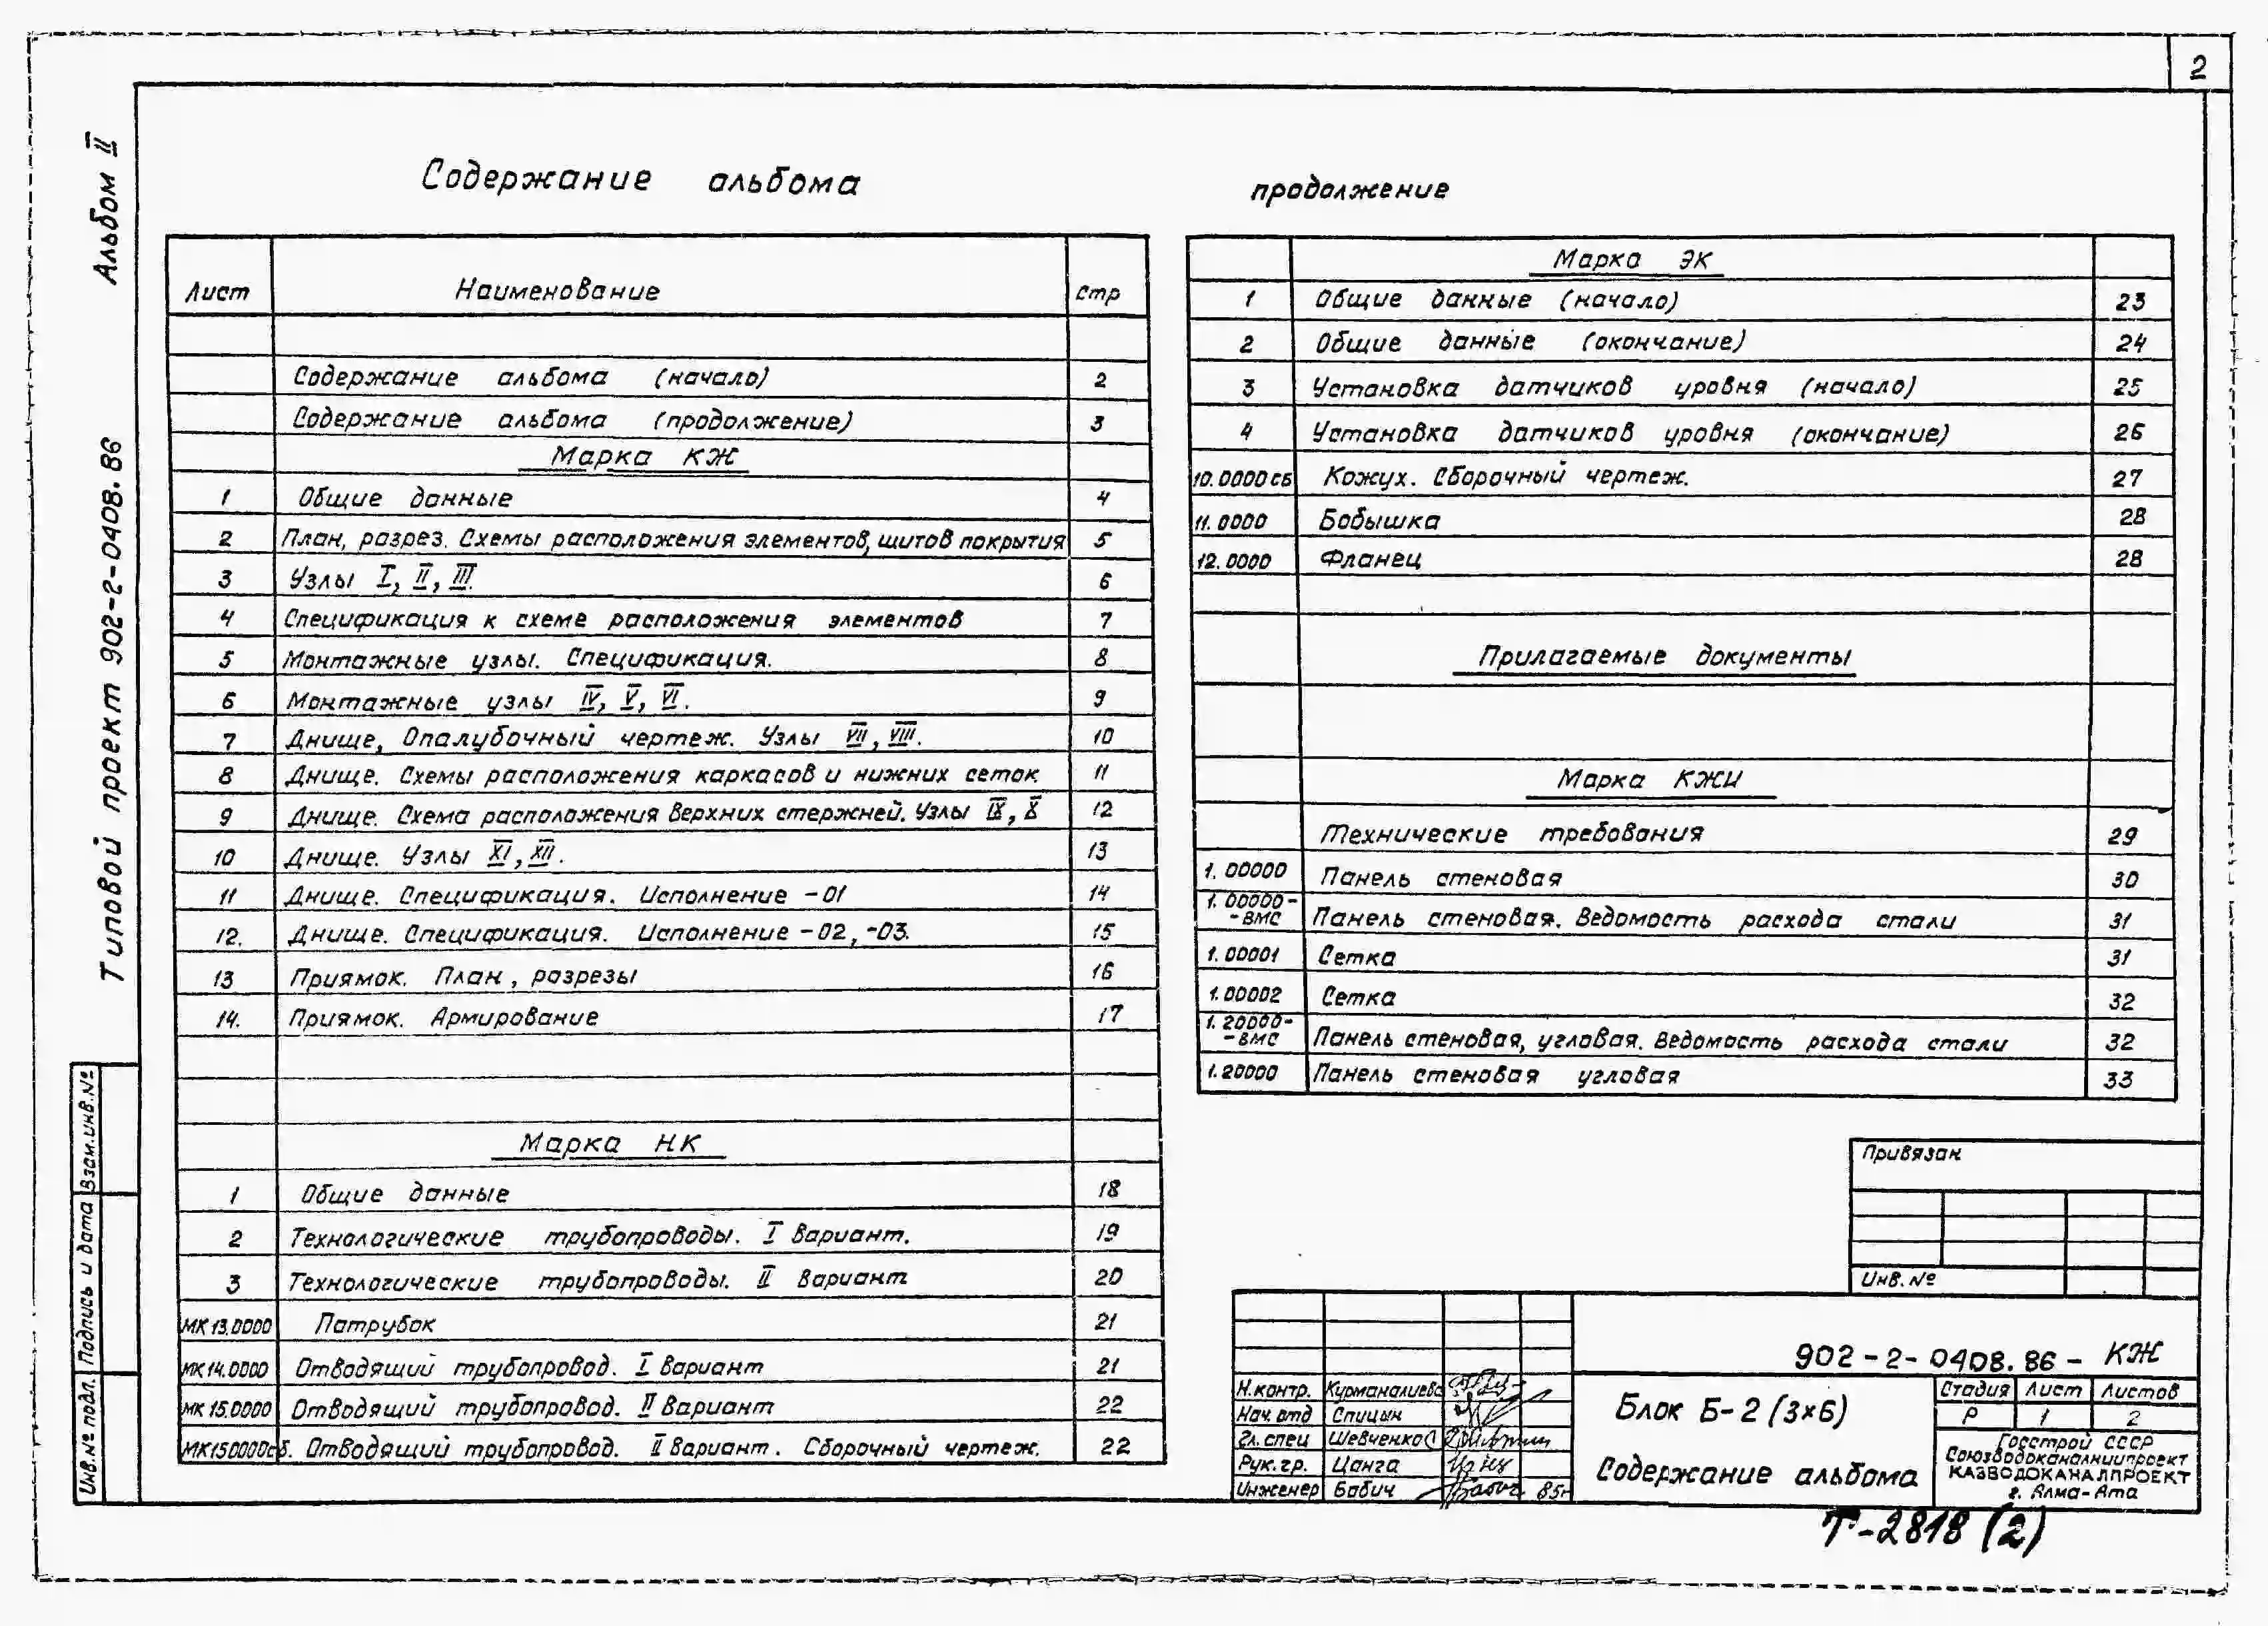 2
Альбом II
Типовой проект 902-2-0408.86
Содержание альбома
Лист Наименование Стр
Содержание альбома (начало) 2
Содержание альбома (продолжение) 3
Марка КЖ
1 Общие данные 4
2 План, разрез. Схемы расположения элементов, щитов покрытия 5
3 Узлы I, II, III. 6
4 Спецификация к схеме расположения элементов 7
5 Монтажные узлы. Спецификация. 8
6 Монтажные узлы IV, V, VI. 9
7 Днище, Опалубочный чертеж. Узлы VII, VIII. 10
8 Днище. Схемы расположения каркасов и нижних сеток 11
9 Днище. Схема расположения верхних стержней. Узлы IX, X 12
10 Днище. Узлы XI, XII. 13
11 Днище. Спецификация. Исполнение -01 14
12. Днище. Спецификация. Исполнение -02, -03. 15
13 Приямок. План, разрезы 16
14. Приямок. Армирование 17
Марка НК
1 Общие данные 18
2 Технологические трубопроводы. I Вариант. 19
3 Технологические трубопроводы. II Вариант 20
МК13.0000 Патрубок 21
МК14.0000 Отводящий трубопровод. I Вариант 21
МК15.0000 Отводящий трубопровод. II Вариант 22
МК150000сб. Отводящий трубопровод. II Вариант. Сборочный чертеж. 22
продолжение
Марка ЭК
1 Общие данные (начало) 23
2 Общие данные (окончание) 24
3 Установка датчиков уровня (начало) 25
4 Установка датчиков уровня (окончание) 26
10.0000сб Кожух. Сборочный чертеж. 27
11.0000 Бобышка 28
12.0000 Фланец 28
Прилагаемые документы
Марка КЖИ
Технические требования 29
1.00000 Панель стеновая 30
1.00000-
-ВМС Панель стеновая. Ведомость расхода стали 31
1.00001 Сетка 31
1.00002 Сетка 32
1.20000-
-ВМС Панель стеновая, угловая. Ведомость расхода стали 32
1.20000 Панель стеновая угловая 33
Привязан
Инв.№
902-2-0408.86- КЖ
Н.контр. Курманалиева
Нач. отд Спицын
Гл. спец Шевченко
Рук. гр. Цанга
Инженер Бабич 85г
Блок Б-2 (3×6)
Содержание альбома
Стадия Лист Листов
Р 1 2
Госстрой СССР
Союзводоканалниипроект
КАЗВОДОКАНАЛПРОЕКТ
г. Алма-Ата
Т-2818 (2)
Взам.инв.№
Подпись и дата
Инв.№ подл.